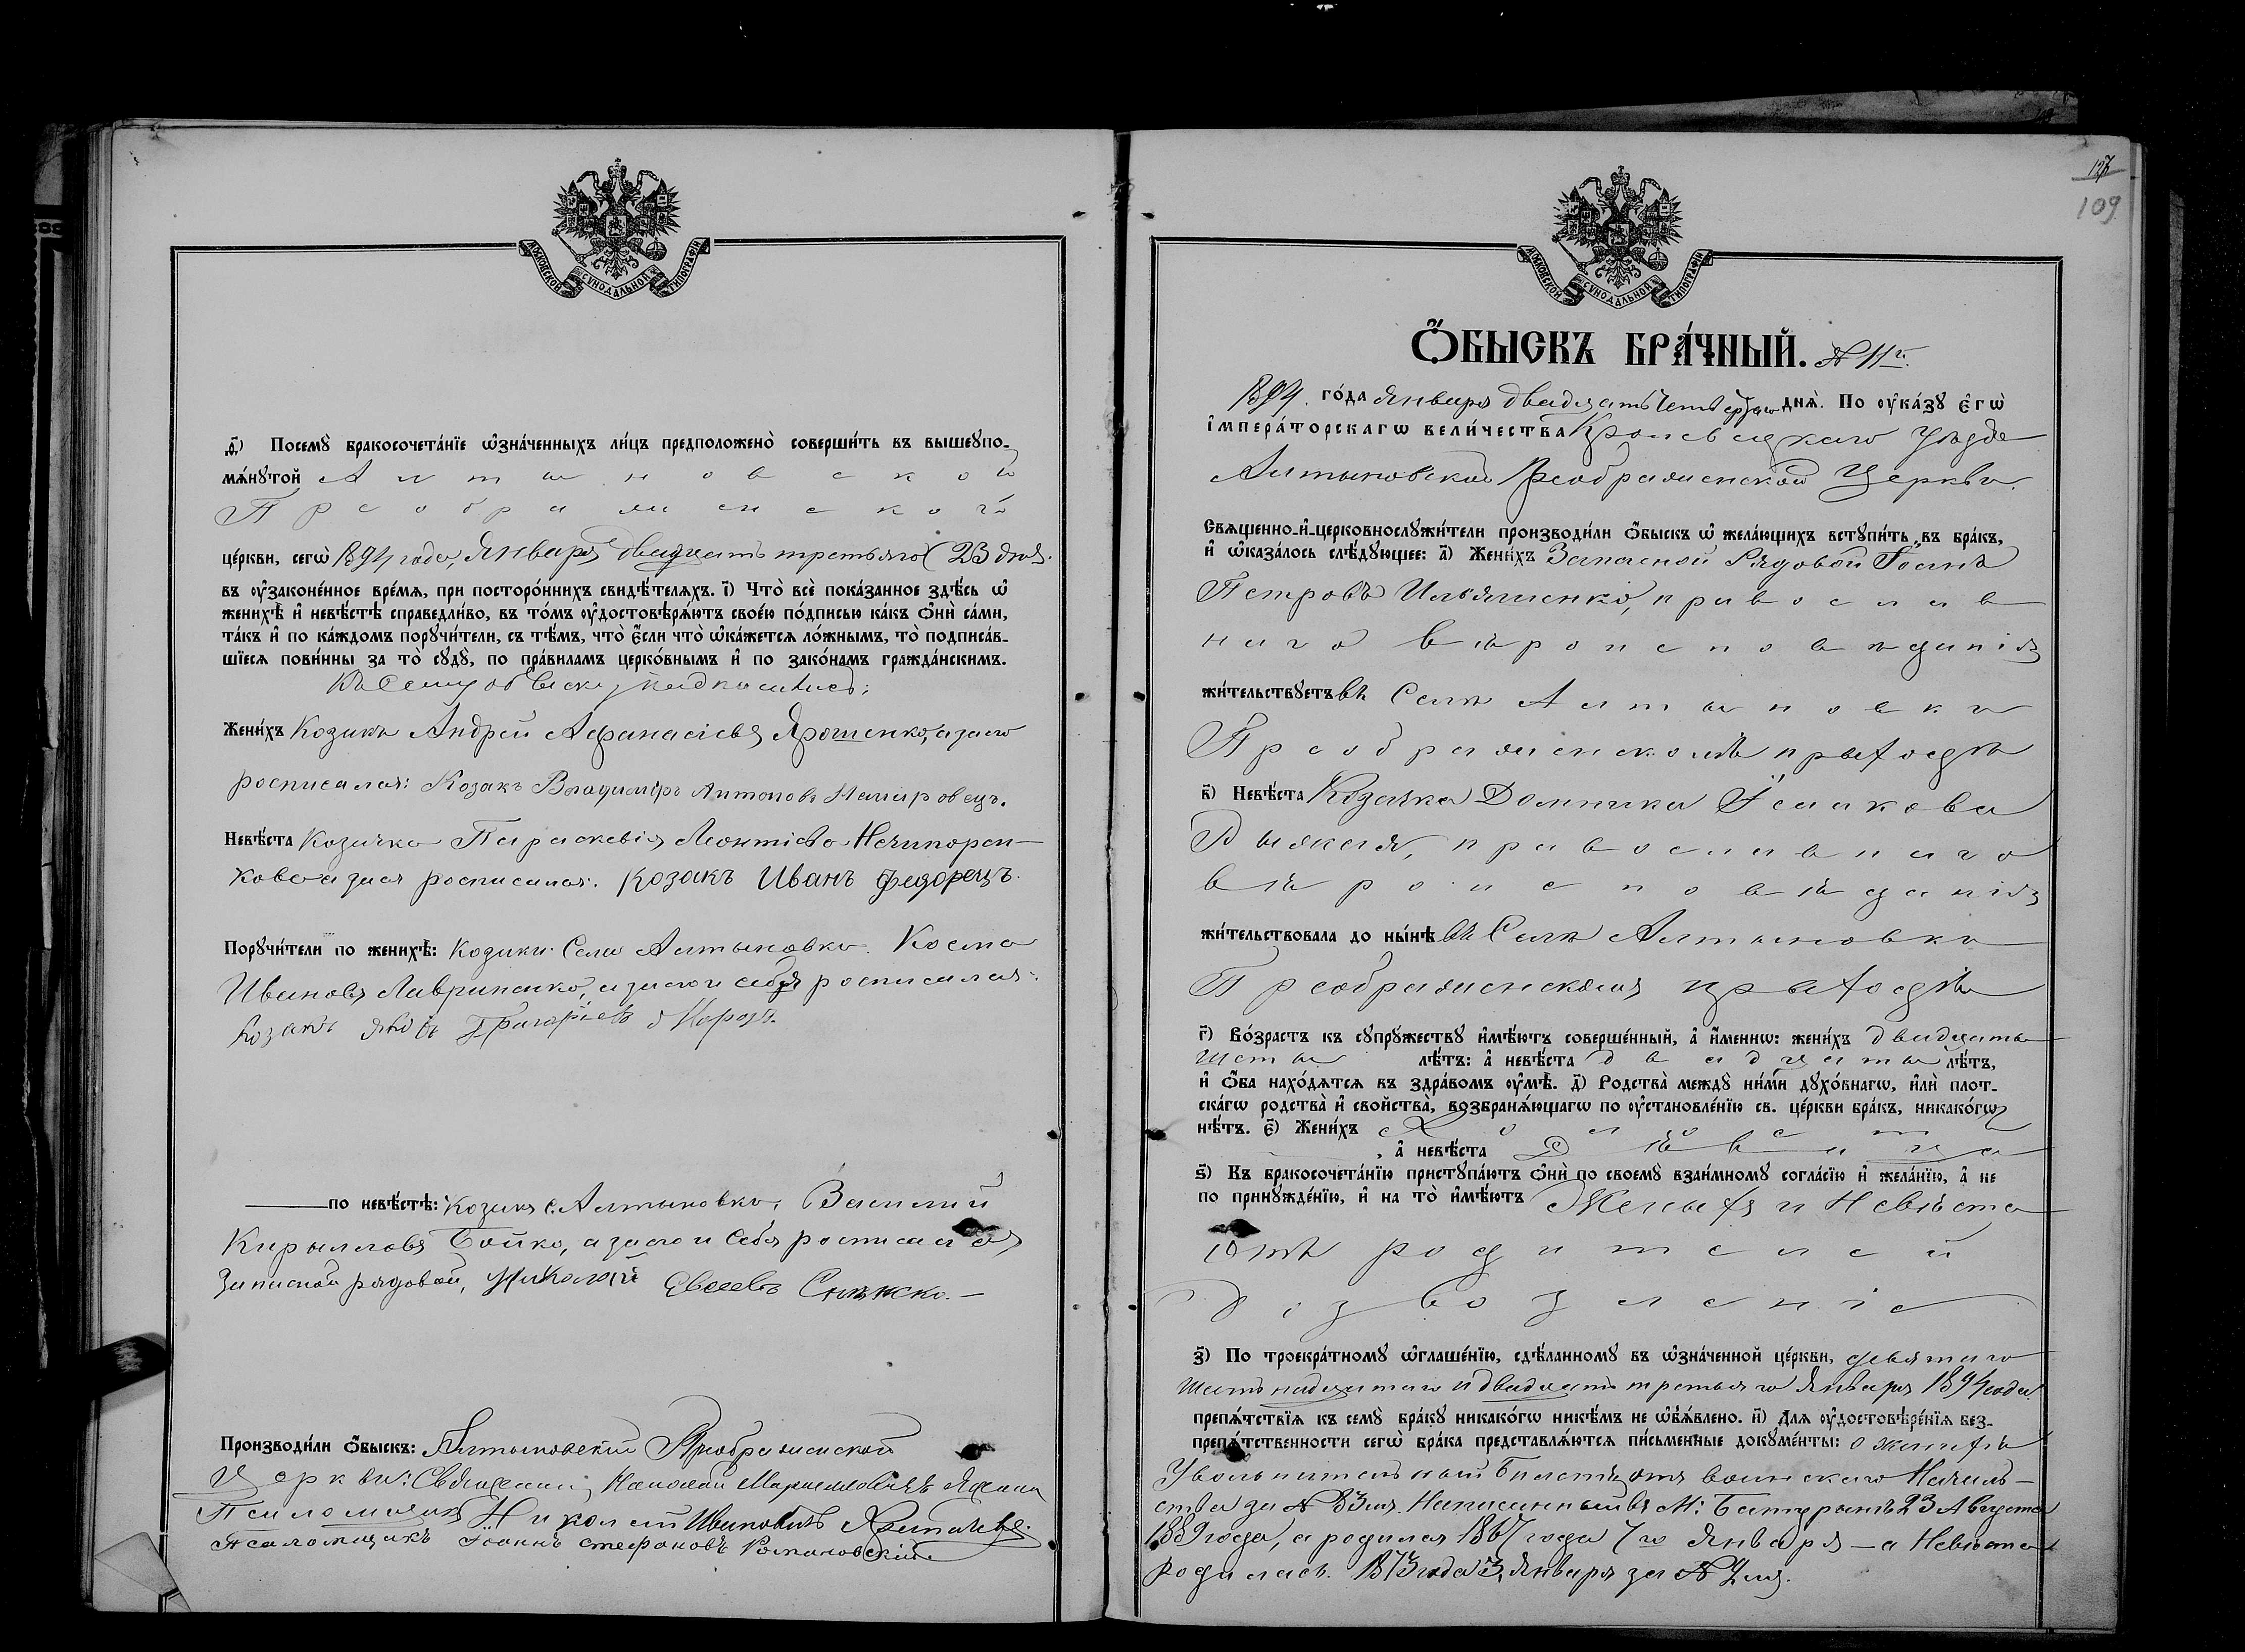 МОСКОВСКОЙ СѴНОДАЛЬНОЙ ТИПОГРАФІИ
д҃) Посемꙋ̀ бракосочета́нїе ѡ҆зна́ченныхъ ли́цъ предположено̀ соверши́ть въ вышеꙋпо-
мѧ́нꙋтой Алтыновской
Преображенской
це́ркви, сегѡ̀ 1894 года, Января двадцать третьяго (23 дня.
въ ᲂу҆зако́ненное вре́мѧ, при посторо́ннихъ свидѣ́телѧхъ. і҃) Что̀ всѐ пока́занное здѣ́сь ѡ҆
женихѣ̀ и҆ невѣ́стѣ справедли́во, въ то́мъ ᲂу҆достовѣрѧ́ютъ свое́ю по́дписью ка́къ ѻ҆нѝ са́ми,
та́къ и҆ по ка́ждомъ порꙋчи́тели, съ тѣ́мъ, что̀ є҆́сли что̀ ѡ҆ка́жетсѧ ло́жнымъ, то̀ подписа́в-
шїесѧ пови́нны за то̀ сꙋдꙋ̀, по пра́виламъ церко́внымъ и҆ по зако́намъ гражда́нскимъ.
Къ сему обыску подписались:
Жени́хъ Козакъ Андрей Афанасіевъ Ярошенко, а за его
росписался: Козакъ Владимиръ Антоновъ
Невѣ́ста Козачка Параскевія Леонтіева Нечипорен-
кова а за ея росписался: Козакъ Иванъ Федорецъ.
Порꙋчи́тели по женихѣ̀: Козаки Села Алтыновки. Косма
Ивановъ Лавриненко, а за его и себя росписался:
Козакъ Яковъ Григоріевъ
по невѣ́стѣ: Козакъ с. Алтыновки, Василій
Кирилловъ Бойко, а за его и себя росписался
Запасной рядовой, Николай Евсеевъ
Производи́ли ѻ҆́быскъ: Алтыновской Преображенской
Церкви: Священникъ
Псаломщикъ Николай Ивановичъ
Псаломщикъ Іоаннъ Стефановъ Романовскій
127
109
МОСКОВСКОЙ СѴНОДАЛЬНОЙ ТИПОГРАФІИ
Ѻ҆́БЫСКЪ БРА́ЧНЫЙ. № 11й.
1894. го́да Января двадцать четвертаго днѧ̀. По ᲂу҆ка́зꙋ є҆гѡ̀
і҆мпера́торскагѡ вели́чества Кролевецкаго Уѣзда
Алтыновской Преображенской Церкви.
Свѧще́нно-и҆-церковнослꙋжи́тели производи́ли ѻ҆́быскъ ѡ҆ жела́ющихъ встꙋпи́ть въ бра́къ,
и҆ ѡ҆каза́лось слѣ́дꙋющее: а҃) Жени́хъ Запасной Рядовой Іоаннъ
Петровъ Ильяшенко, православ
наго вѣроисповѣданія
жи́тельствꙋетъ въ Селѣ Алтыновки
Преображенскомъ приходѣ
в҃) Невѣ́ста Козачка Домника Ісаакова
православнаго
вѣроисповѣданія
жи́тельствовала до ны́нѣ въ Селѣ Алтыновки
Преображенскомъ приходѣ
г҃) Во́зрастъ къ сꙋпрꙋжествꙋ и҆мѣ́ютъ соверше́нный, а҆ и҆́меннѡ: жени́хъ двадцать
шесть лѣ́тъ: а҆ невѣ́ста двадцать лѣ́тъ,
и҆ ѻ҆́ба нахо́дѧтсѧ въ здра́вомъ ᲂу҆мѣ̀. д҃) Родства̀ междꙋ̀ ни́ми дꙋхо́внагѡ, и҆лѝ плот-
ска́гѡ родства̀ и҆ свойства̀, возбранѧ́ющагѡ по ᲂу҆становле́нїю св. це́ркви бра́къ, никако́гѡ
нѣ́тъ. є҃) Жени́хъ Холостъ
, а҆ невѣ́ста Дѣвица
ѕ҃) Къ бракосочета́нїю пристꙋпа́ютъ ѻ҆нѝ по своемꙋ̀ взаи́мномꙋ согла́сїю и҆ жела́нїю, а҆ не
по принꙋжде́нїю, и҆ на то̀ и҆мѣ́ютъ Женихъ и Невѣста
отъ родителей
дозволеніе
з҃) По троекра́тномꙋ ѡ҆глаше́нїю, сдѣ́ланномꙋ въ ѡ҆зна́ченной це́ркви, девятаго
шестьнадцатаго и двадцать третьяго Января 1894 года
препѧ́тствїѧ къ семꙋ̀ бра́кꙋ никако́гѡ никѣ́мъ не ѡ҆б̾ѧ́влено. и҃) Для ᲂу҆достовѣре́нїѧ без-
препѧ́тственности сегѡ̀ бра́ка представлѧ́ютсѧ пи́сьменные докꙋме́нты: о женихѣ
Увольнительный билетъ отъ воинскаго Началь-
ства за № 33мъ. Написанный въ М: Батуринѣ 23 Августа
1889 года, а родился 1867 года 7го Января — а Невѣста
родилась 1873 года 3, Января за № 2мъ.